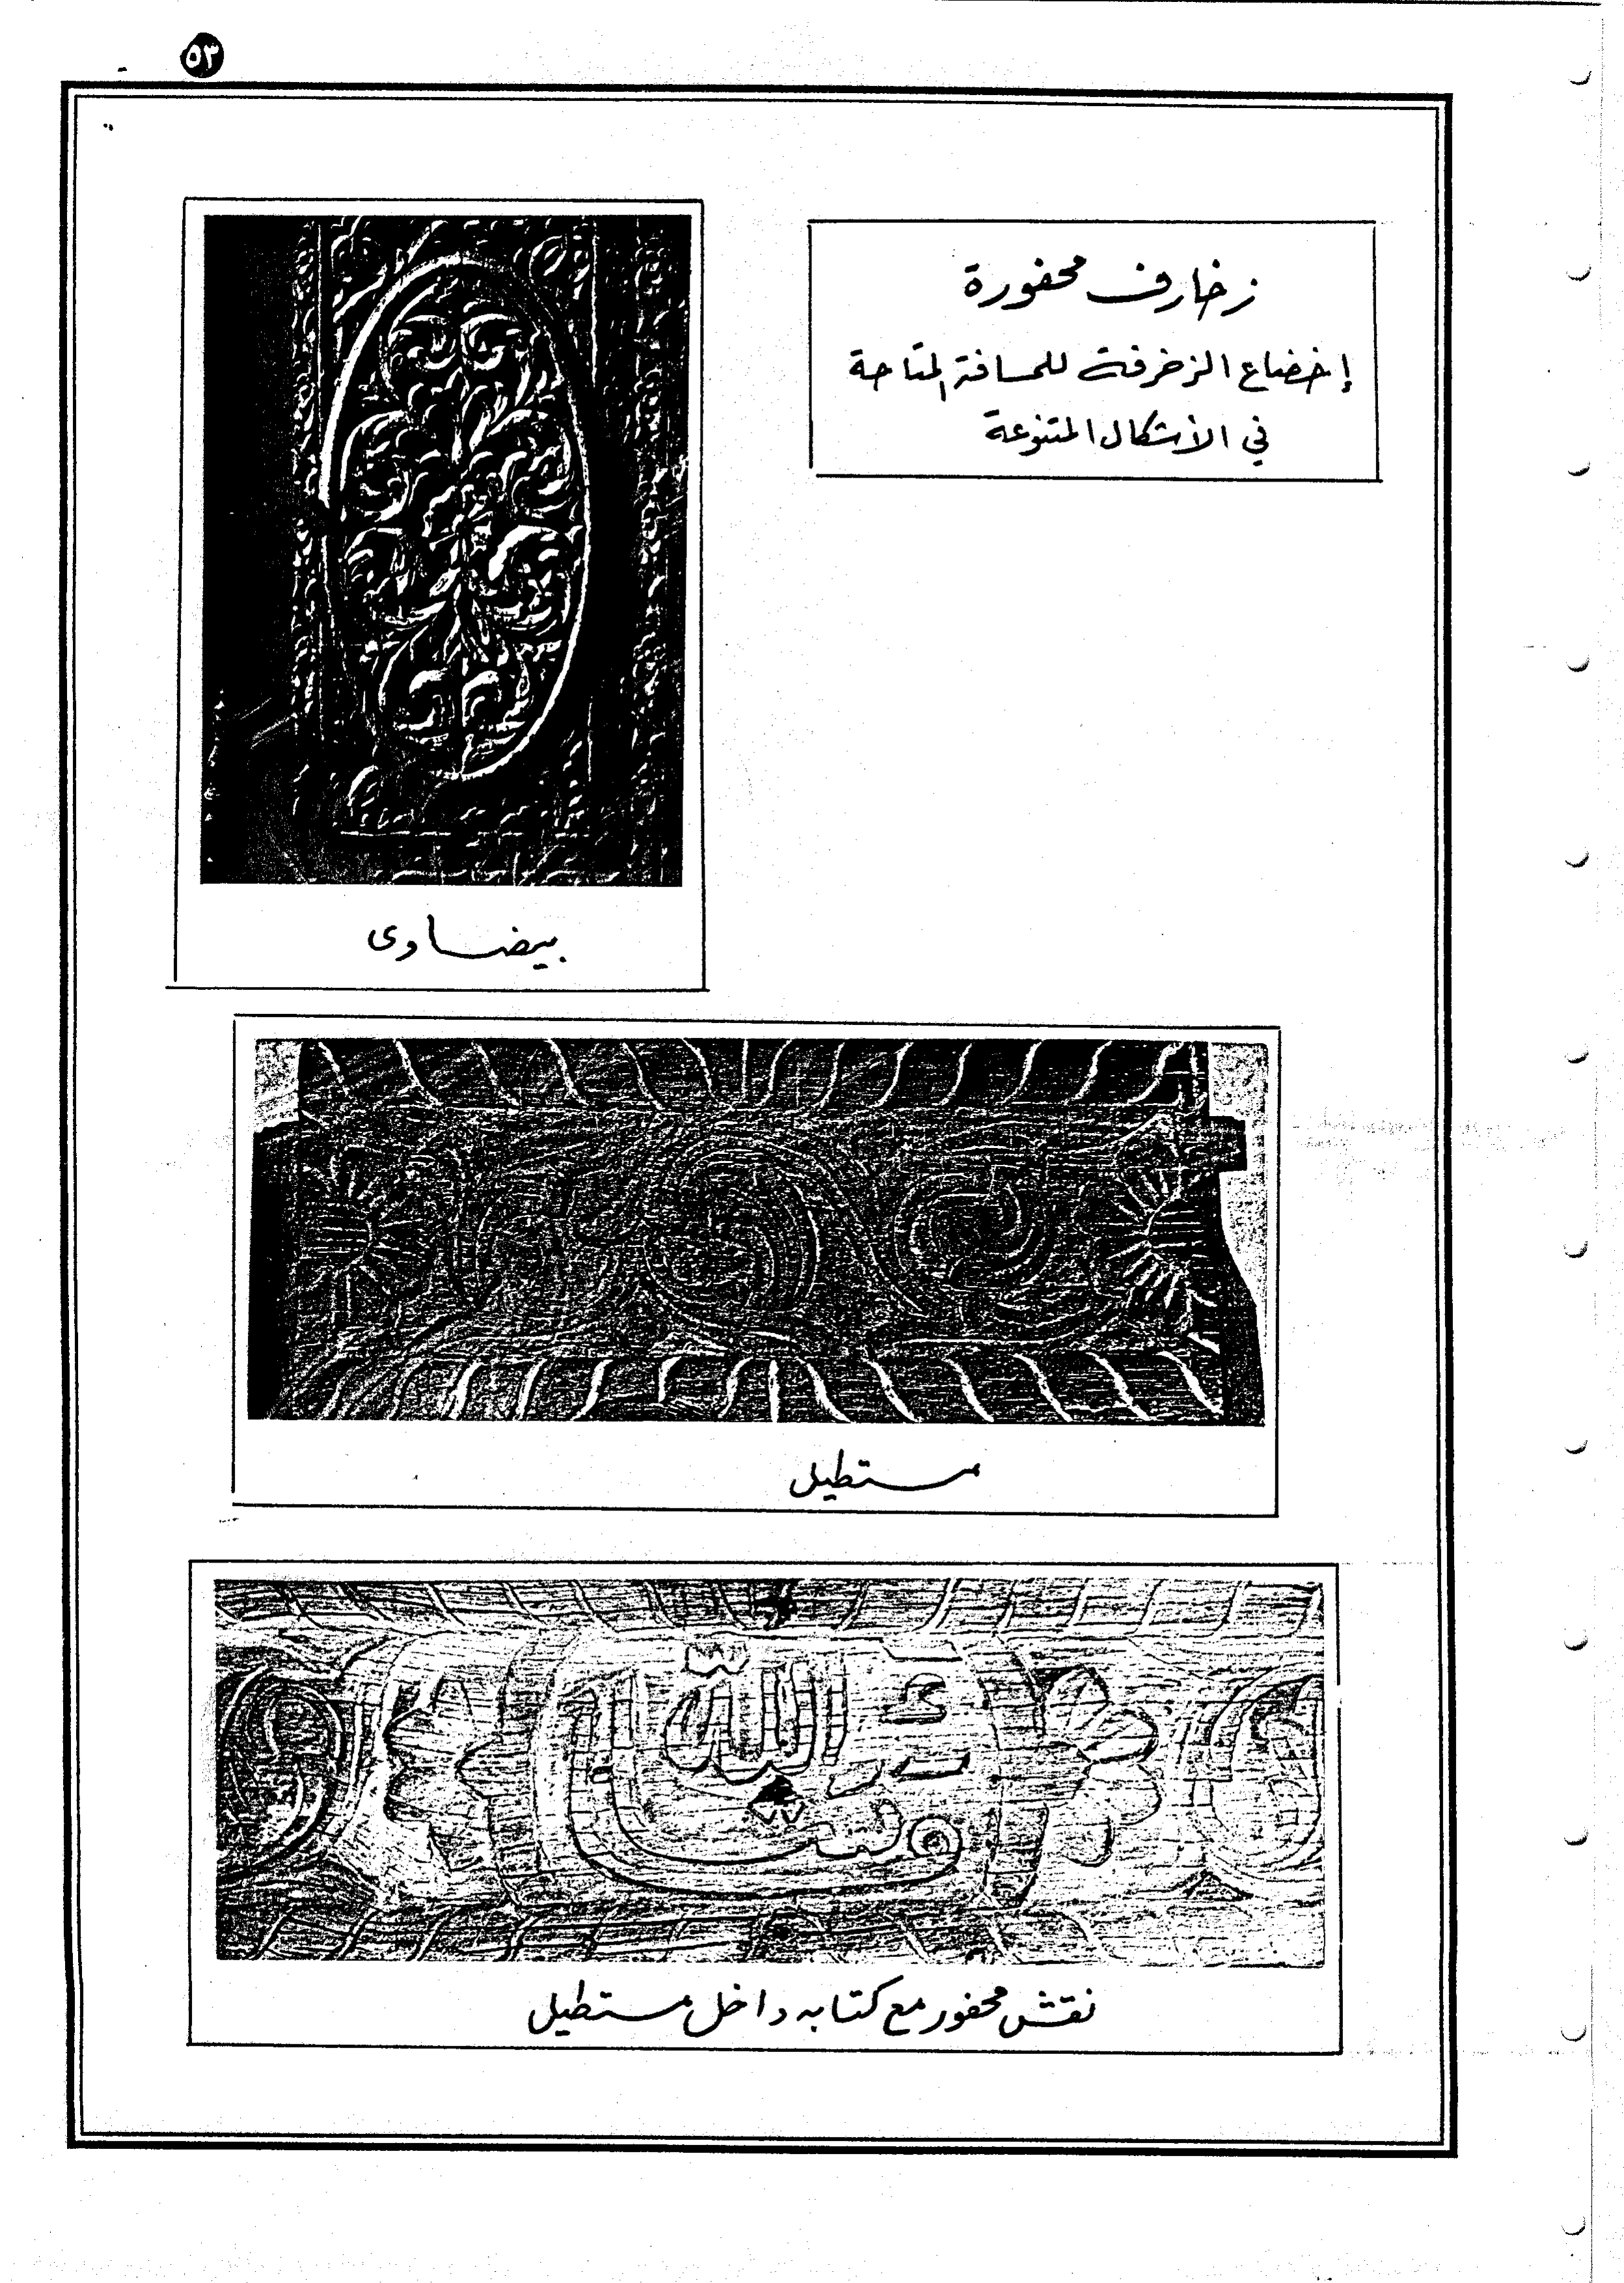 ٥٣
زخارف محفورة
إخضاع الزخرفة للمسافة المتاحة
في الأشكال المتنوعة
بيضاوى
مستطيل
الله
نقش محفور مع كتابه داخل مستطيل